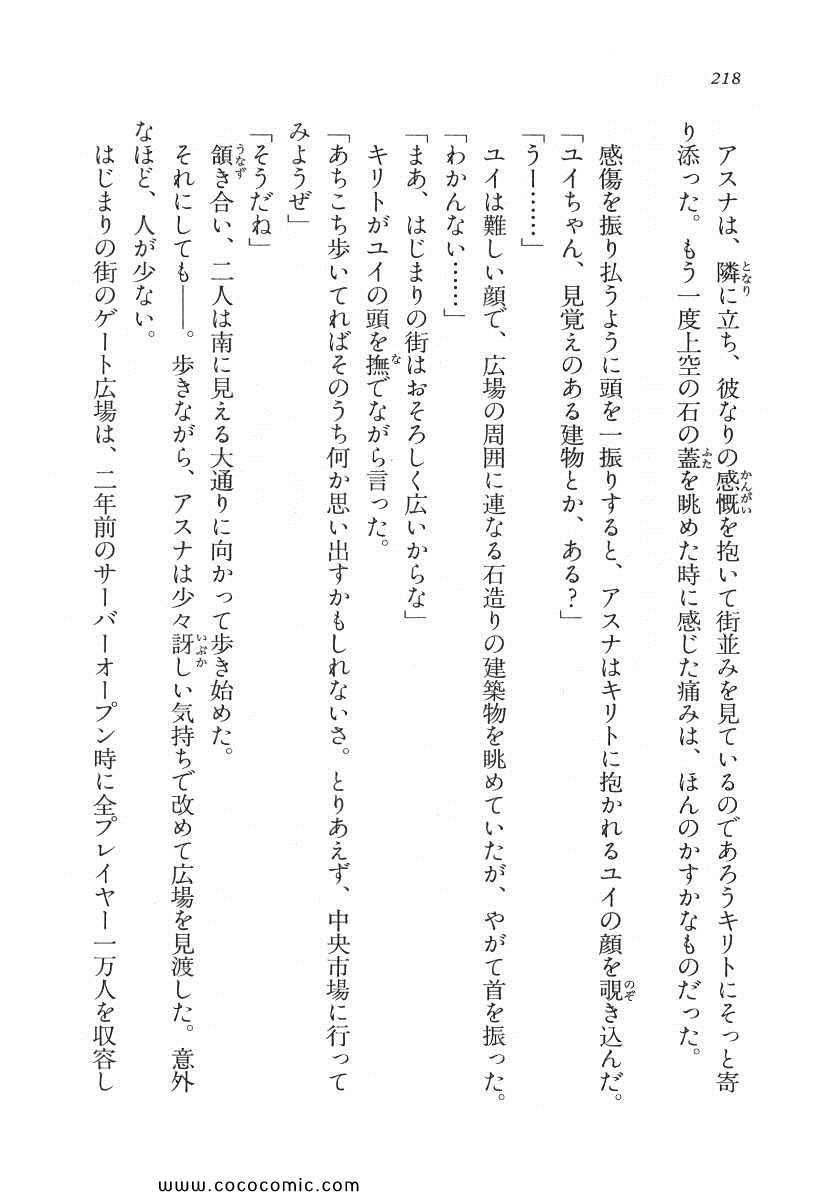 218
アスナは、隣に立ち、彼なりの感慨を抱いて街並みを見ているのであろうキリトにそっと寄
り添った。もう一度上空の石の蓋を眺めた時に感じた痛みは、ほんのかすかなものだった。
感傷を振り払うように頭を一振りすると、アスナはキリトに抱かれるユイの顔を覗き込んだ。
「ユイちゃん、見覚えのある建物とか、ある?」
「うー……」
ユイは難しい顔で、広場の周囲に連なる石造りの建築物を眺めていたが、やがて首を振った。
「わかんない……」
「まあ、はじまりの街はおそろしく広いからな」
キリトがユイの頭を撫でながら言った。
「あちこち歩いてればそのうち何か思い出すかもしれないさ。とりあえず、中央市場に行って
みようぜ」
「そうだね」
頷き合い、二人は南に見える大通りに向かって歩き始めた。
それにしても——。歩きながら、アスナは少々訝しい気持ちで改めて広場を見渡した。意外
なほど、人が少ない。
はじまりの街のゲート広場は、二年前のサーバーオープン時に全プレイヤー一万人を収容し
www.cococomic.com